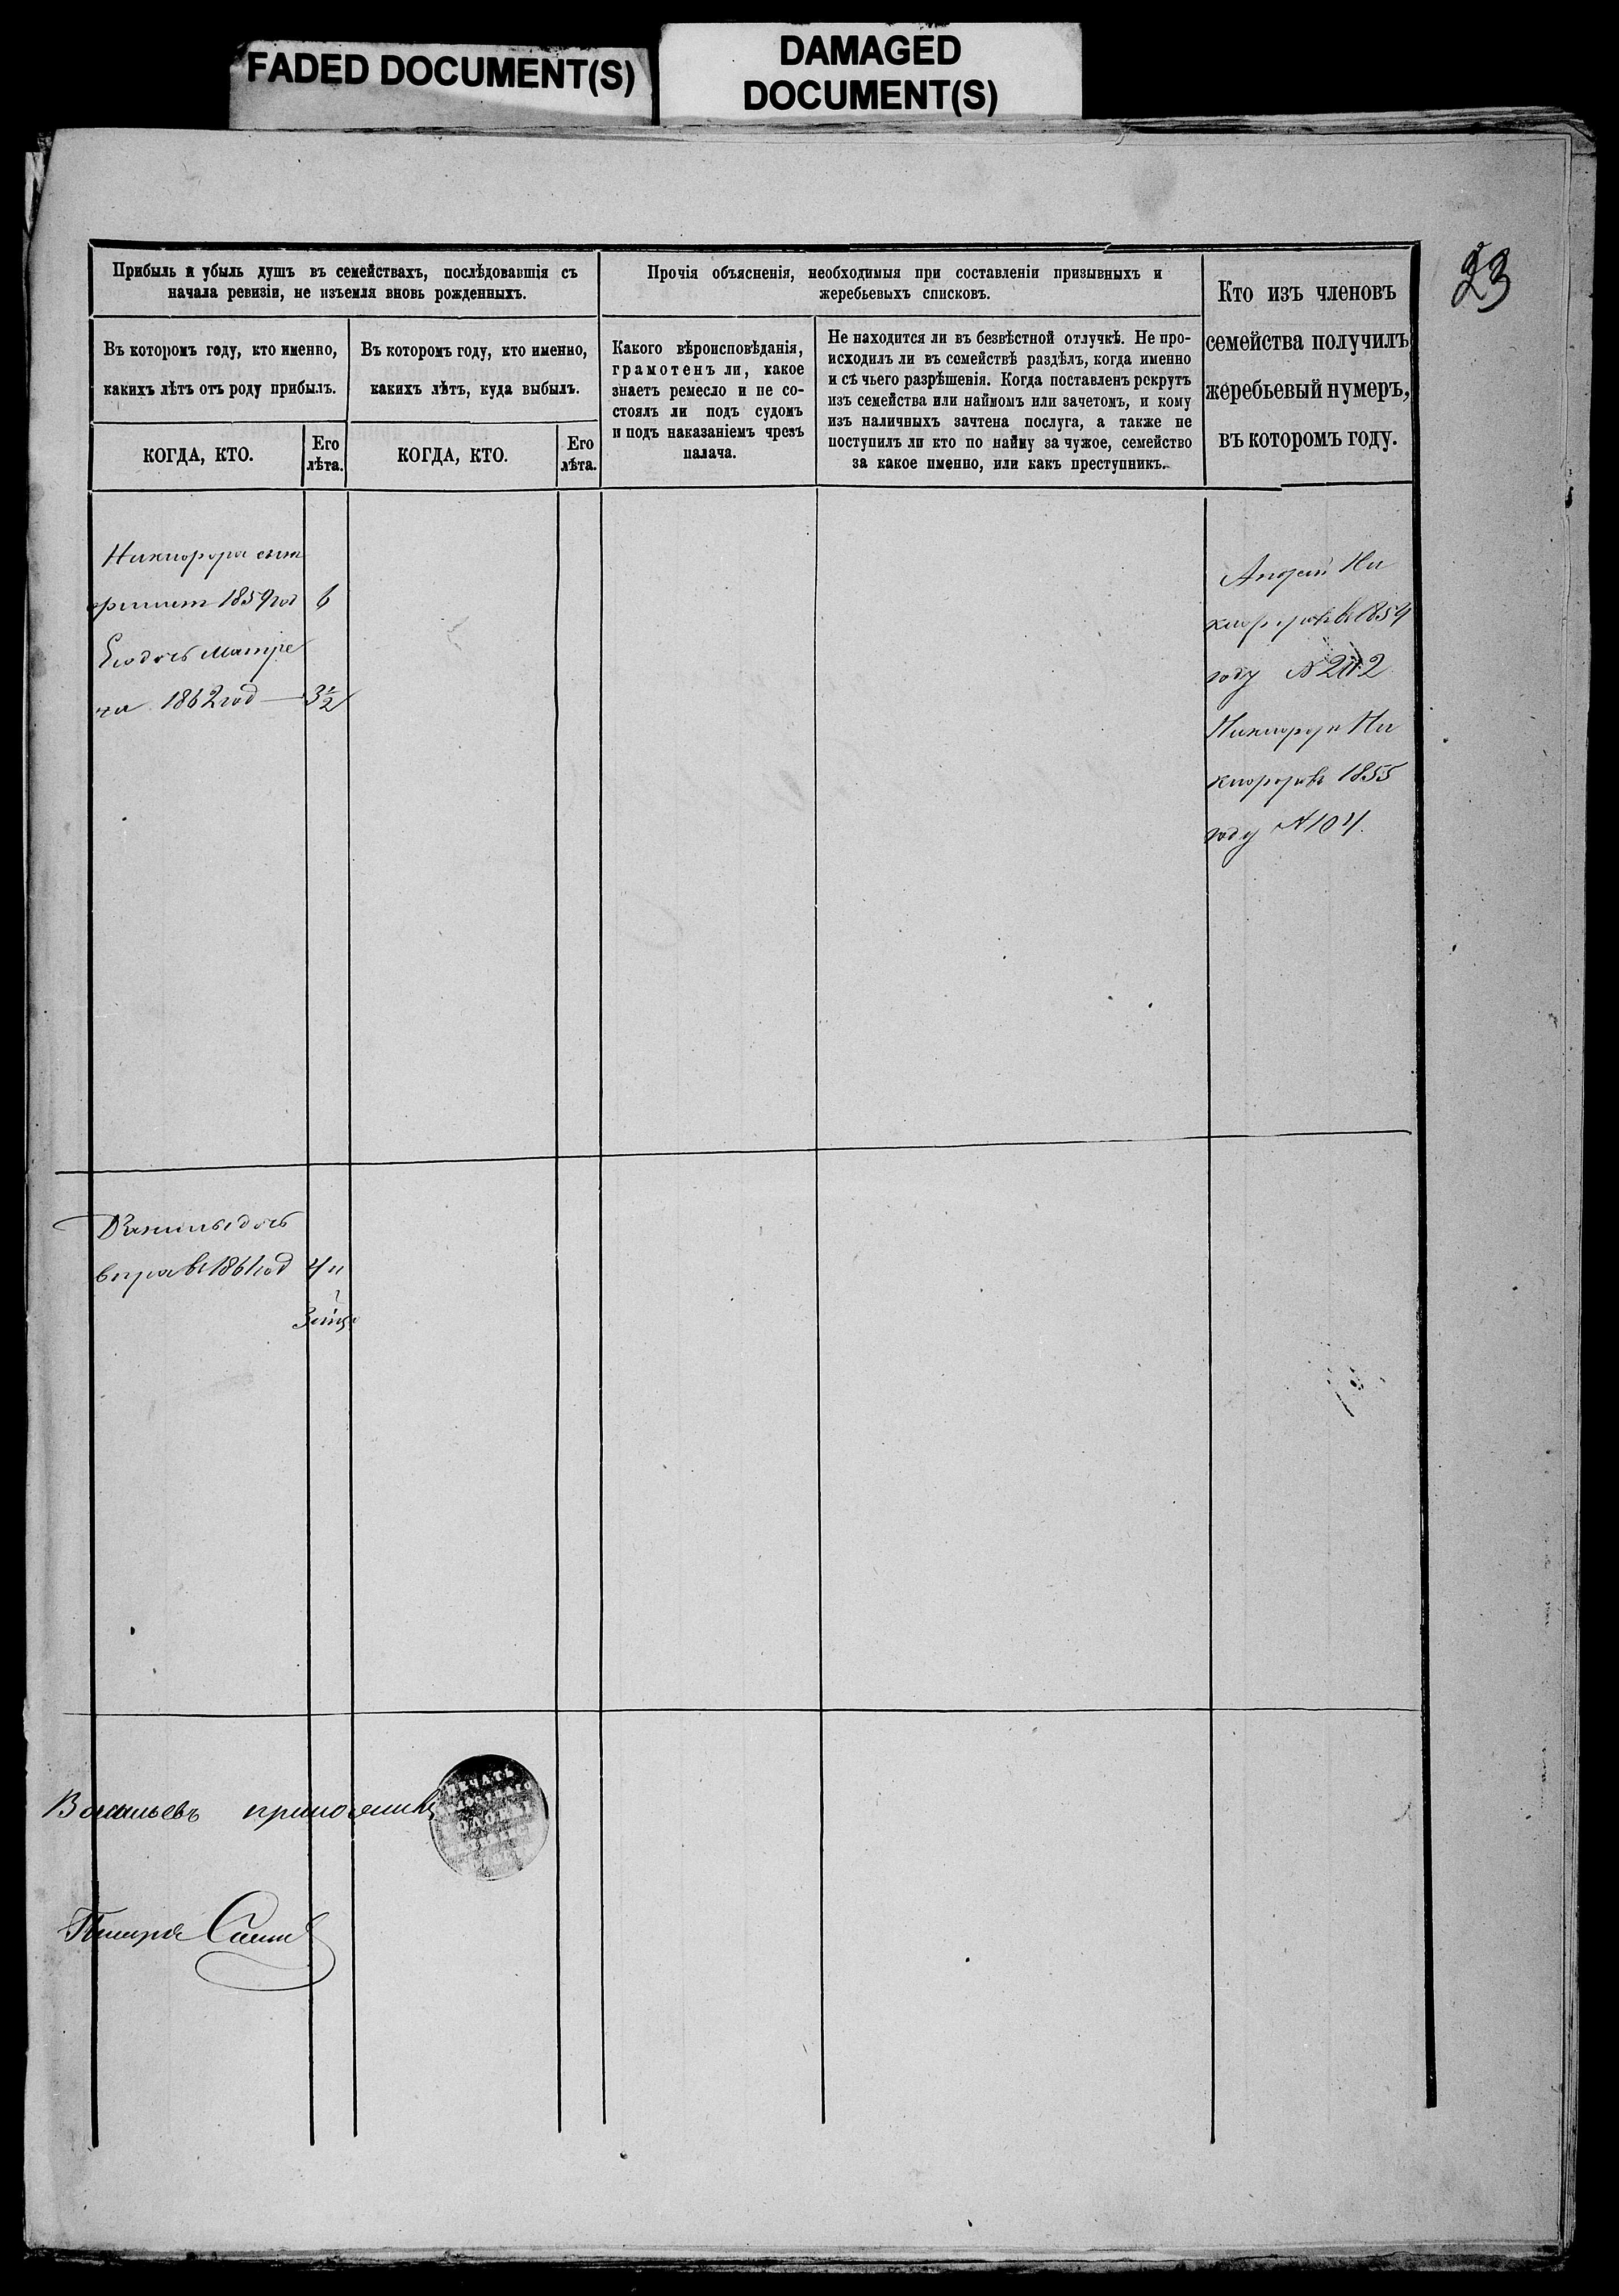 FADED DOCUMENT(S)
DAMAGED
DOCUMENT(S)
23
Прибыль и убыль душъ въ семействахъ, послѣдовавшія съ
начала ревизіи, не изъемля вновь рожденныхъ.
Прочія объясненія, необходимыя при составленіи призывныхъ и
жеребьевыхъ списковъ.
Кто изъ членовъ
семейства получилъ
жеребьевый нумеръ,
въ которомъ году.
Въ которомъ году, кто именно,
какихъ лѣтъ отъ роду прибылъ.
Въ которомъ году, кто именно,
какихъ лѣтъ, куда выбылъ.
Какого вѣроисповѣданія,
грамотенъ ли, какое
знаетъ ремесло и не со-
стоялъ ли подъ судомъ
и подъ наказаніемъ чрезъ
палача.
Не находится ли въ безвѣстной отлучкѣ. Не про-
исходилъ ли въ семействѣ раздѣлъ, когда именно
и съ чьего разрѣшенія. Когда поставленъ рекрутъ
изъ семейства или наймомъ или зачетомъ, и кому
изъ наличныхъ зачтена послуга, а также не
поступилъ ли кто по найму за чужое, семейство
за какое именно, или какъ преступникъ.
КОГДА, КТО.
Его
лѣта.
КОГДА, КТО.
Его
лѣта.
Никифора сынъ
1859 год 6
Его дочь Матре
на 1862 год — 3½
Андрей Ни
кифоровъ въ 1854
году N 202
Никифоръ Ни
кифоровъ 1855
году N 104.
дочь
въ 1861 год 4 и
Васильевъ приложилъ
ПЕЧАТЬ